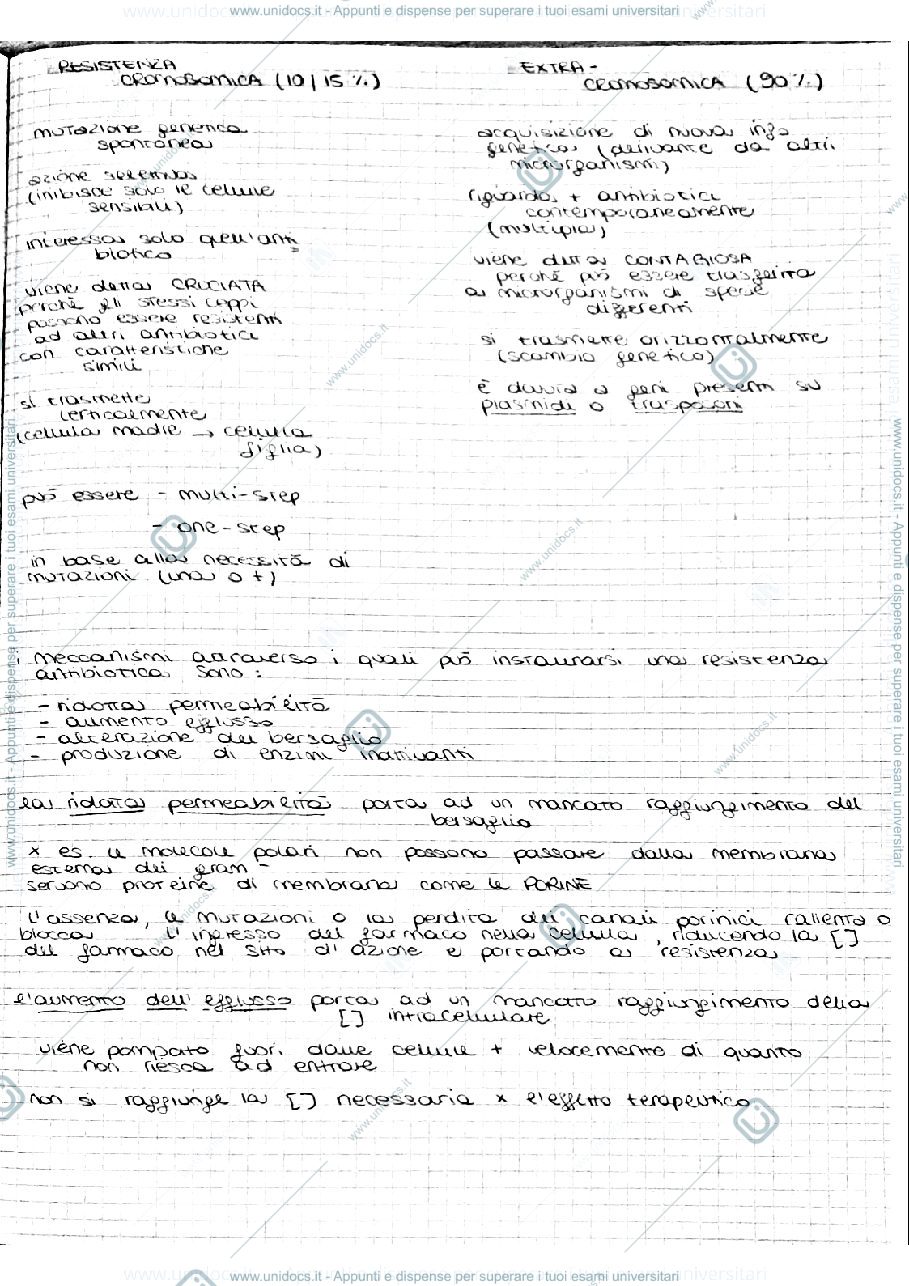 www.unidocs.it - Appunti e dispense per superare i tuoi esami universitari
RESISTENZA
CROMOSOMICA (10/15 %)
mutazione genetica
spontanea
azione selettiva
(inibisce solo le cellule
sensibili)
interessa solo quell'anti
biotico
viene detta CRUCIATA
perché gli stessi ceppi
possono essere resistenti
ad altri antibiotici
con caratteristiche
simili
si trasmette
verticalmente
(cellula madre → cellula
figlia)
può essere - multi-step
- one-step
in base alla necessità di
mutazioni (una o +)
EXTRA-
CROMOSOMICA (90%)
acquisizione di nuova info
genetica (derivante da altri
microrganismi)
riguarda + antibiotici
contemporaneamente
(multipla)
viene detta CONTAGIOSA
perché può essere trasferita
a microrganismi di specie
differenti
si trasmette orizzontalmente
(scambio genetico)
è dovuta a geni presenti su
plasmidi o trasposoni
i meccanismi attraverso i quali può instaurarsi una resistenza
antibiotica sono:
- ridotta permeabilità
- aumento efflusso
- alterazione del bersaglio
- produzione di enzimi inattivanti
la ridotta permeabilità porta ad un mancato raggiungimento del
bersaglio
x es. le molecole polari non possono passare dalla membrana
esterna dei gram -
servono proteine di membrana come le PORINE
l'assenza, le mutazioni o la perdita dei canali porinici rallenta o
blocca l'ingresso del farmaco nella cellula, riducendo la []
del farmaco nel sito d'azione e portando a resistenza
l'aumento dell'efflusso porta ad un mancato raggiungimento della
[] intracellulare
viene pompato fuori dalle cellule + velocemente di quanto
non riesca ad entrare
non si raggiunge la [] necessaria x l'effetto terapeutico
www.unidocs.it - Appunti e dispense per superare i tuoi esami universitari